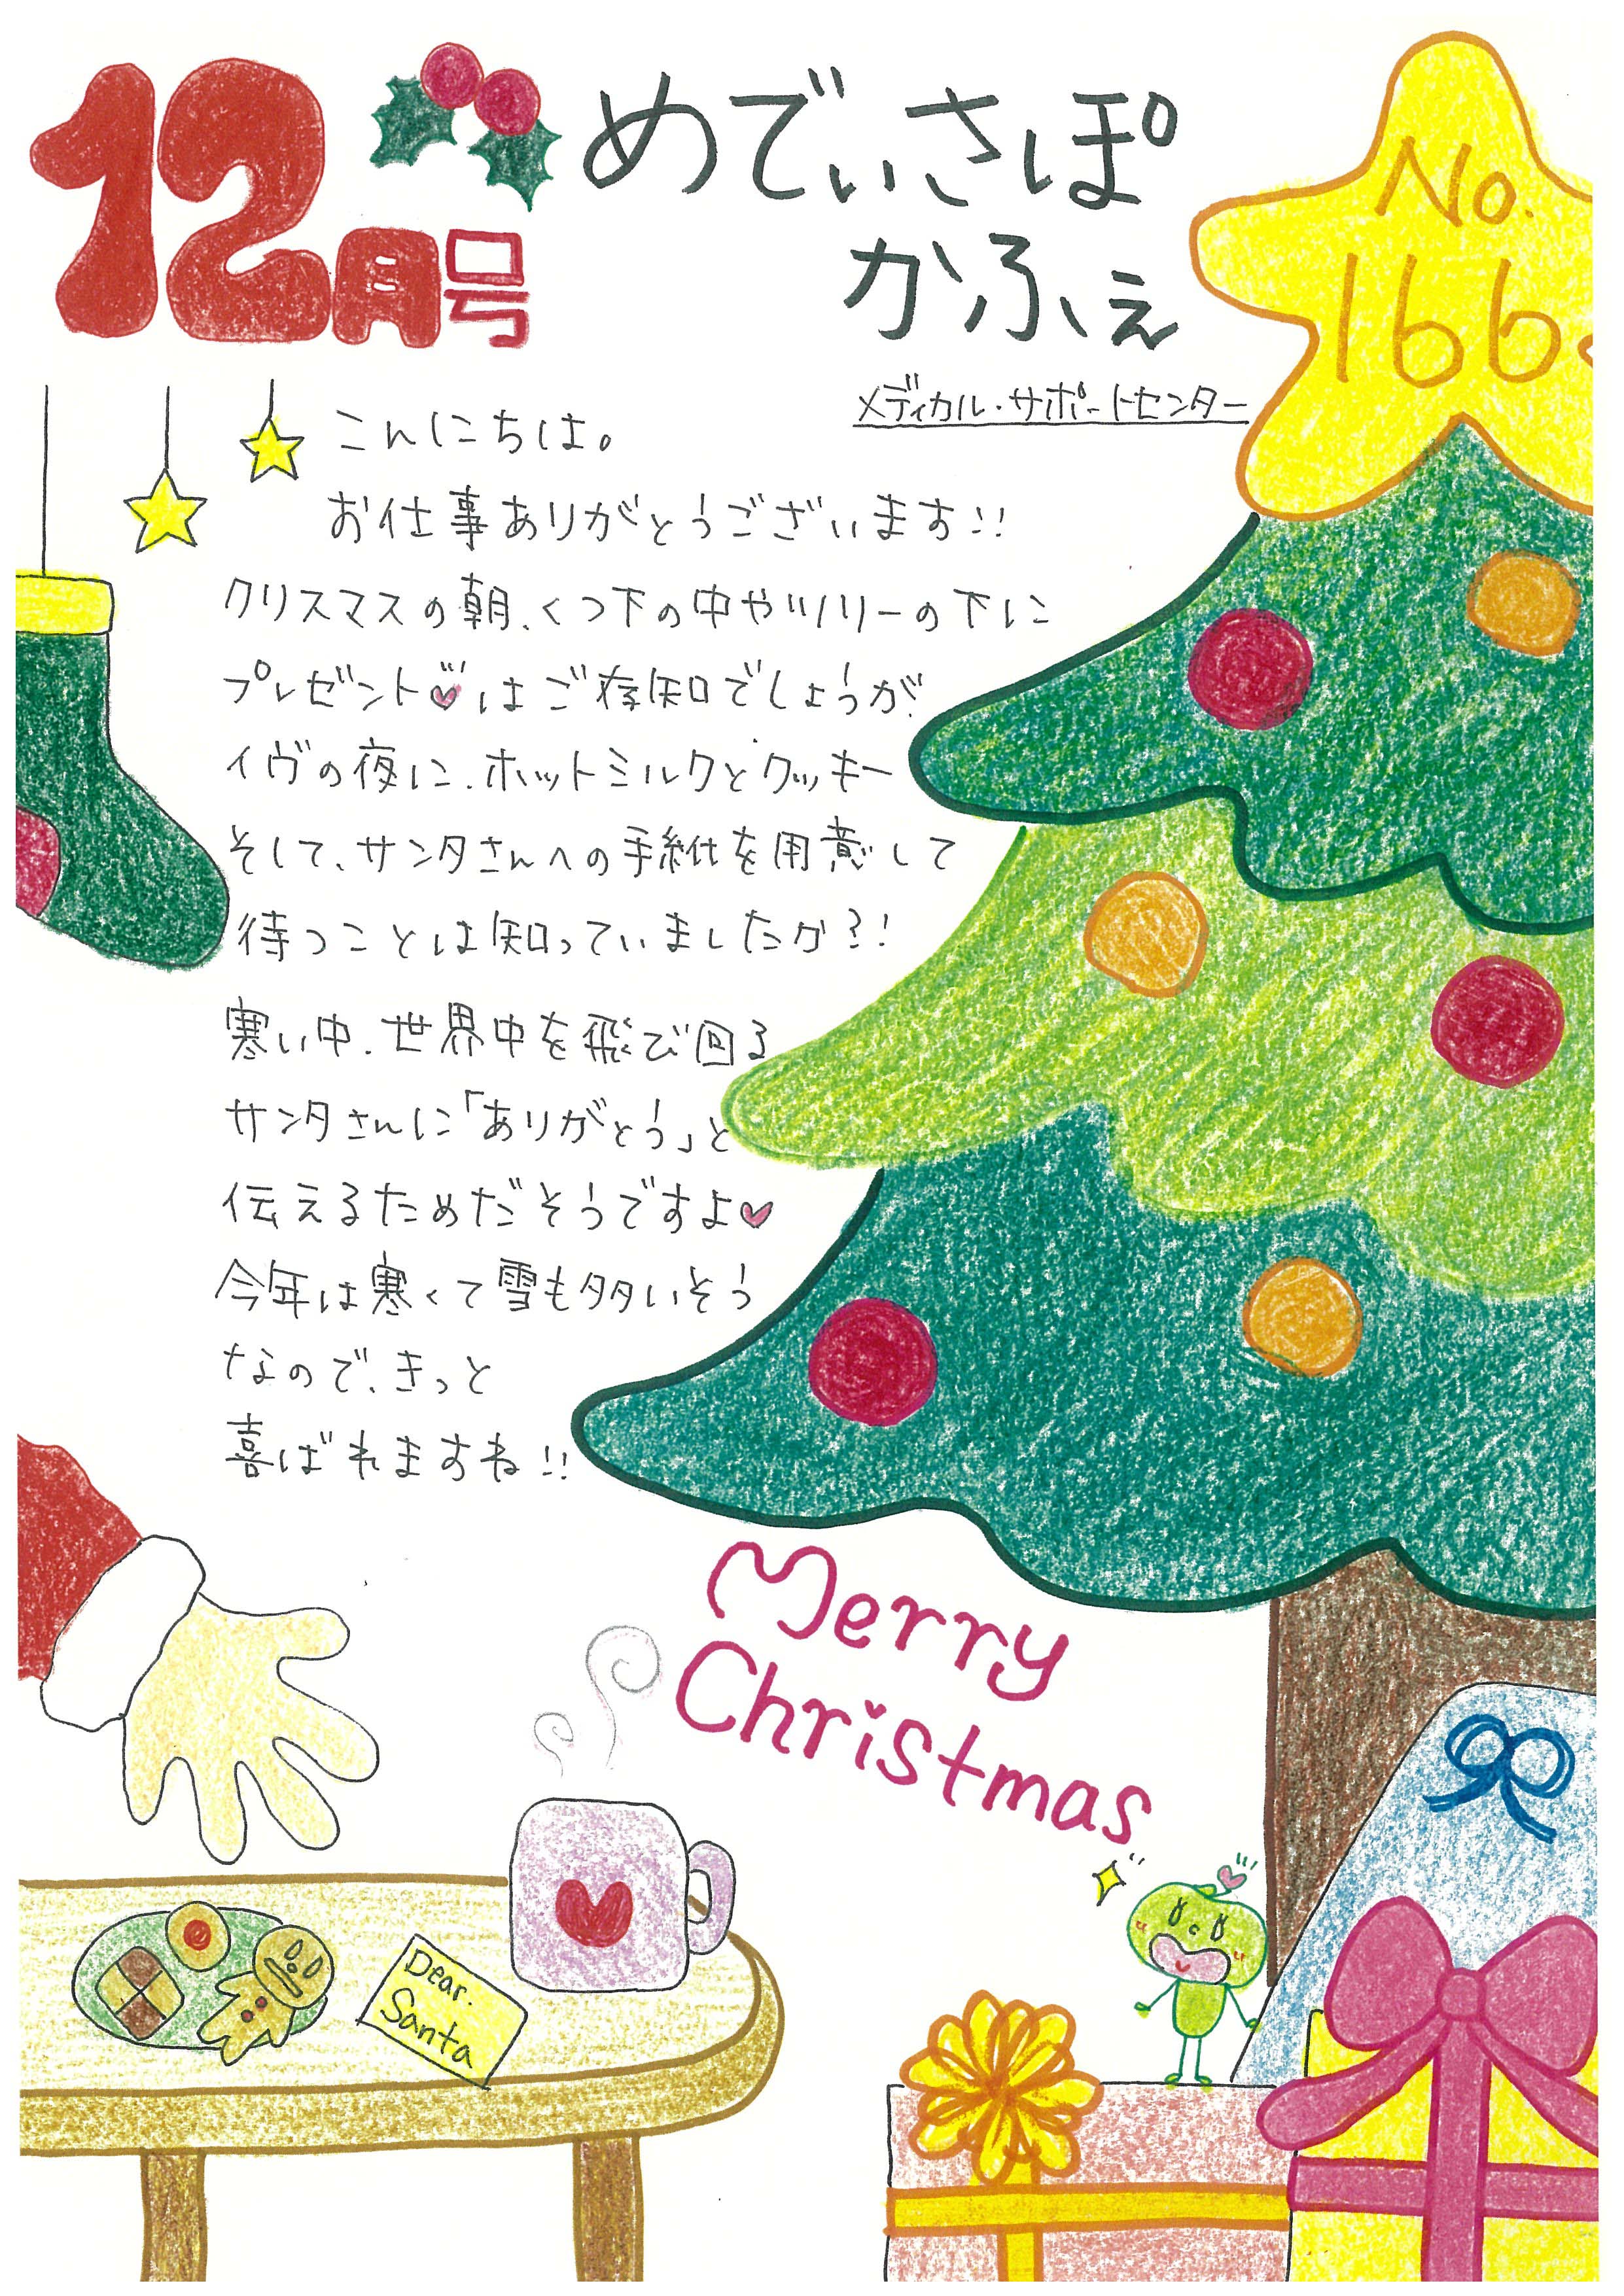 12月号
めでぃさぽ
かふぇ
No.
166
メディカル・サポートセンター
こんにちは。
お仕事ありがとうございます!!
クリスマスの朝、くつ下の中やツリーの下に
プレゼント♡はご存知でしょうが
イヴの夜に、ホットミルクとクッキー
そして、サンタさんへの手紙を用意して
待つことは知っていましたか?!
寒い中、世界中を飛び回る
サンタさんに「ありがとう」と
伝えるためだそうですよ♡
今年は寒くて雪も多いそう
なので、きっと
喜ばれますね!!
Merry
Christmas
Dear.
Santa